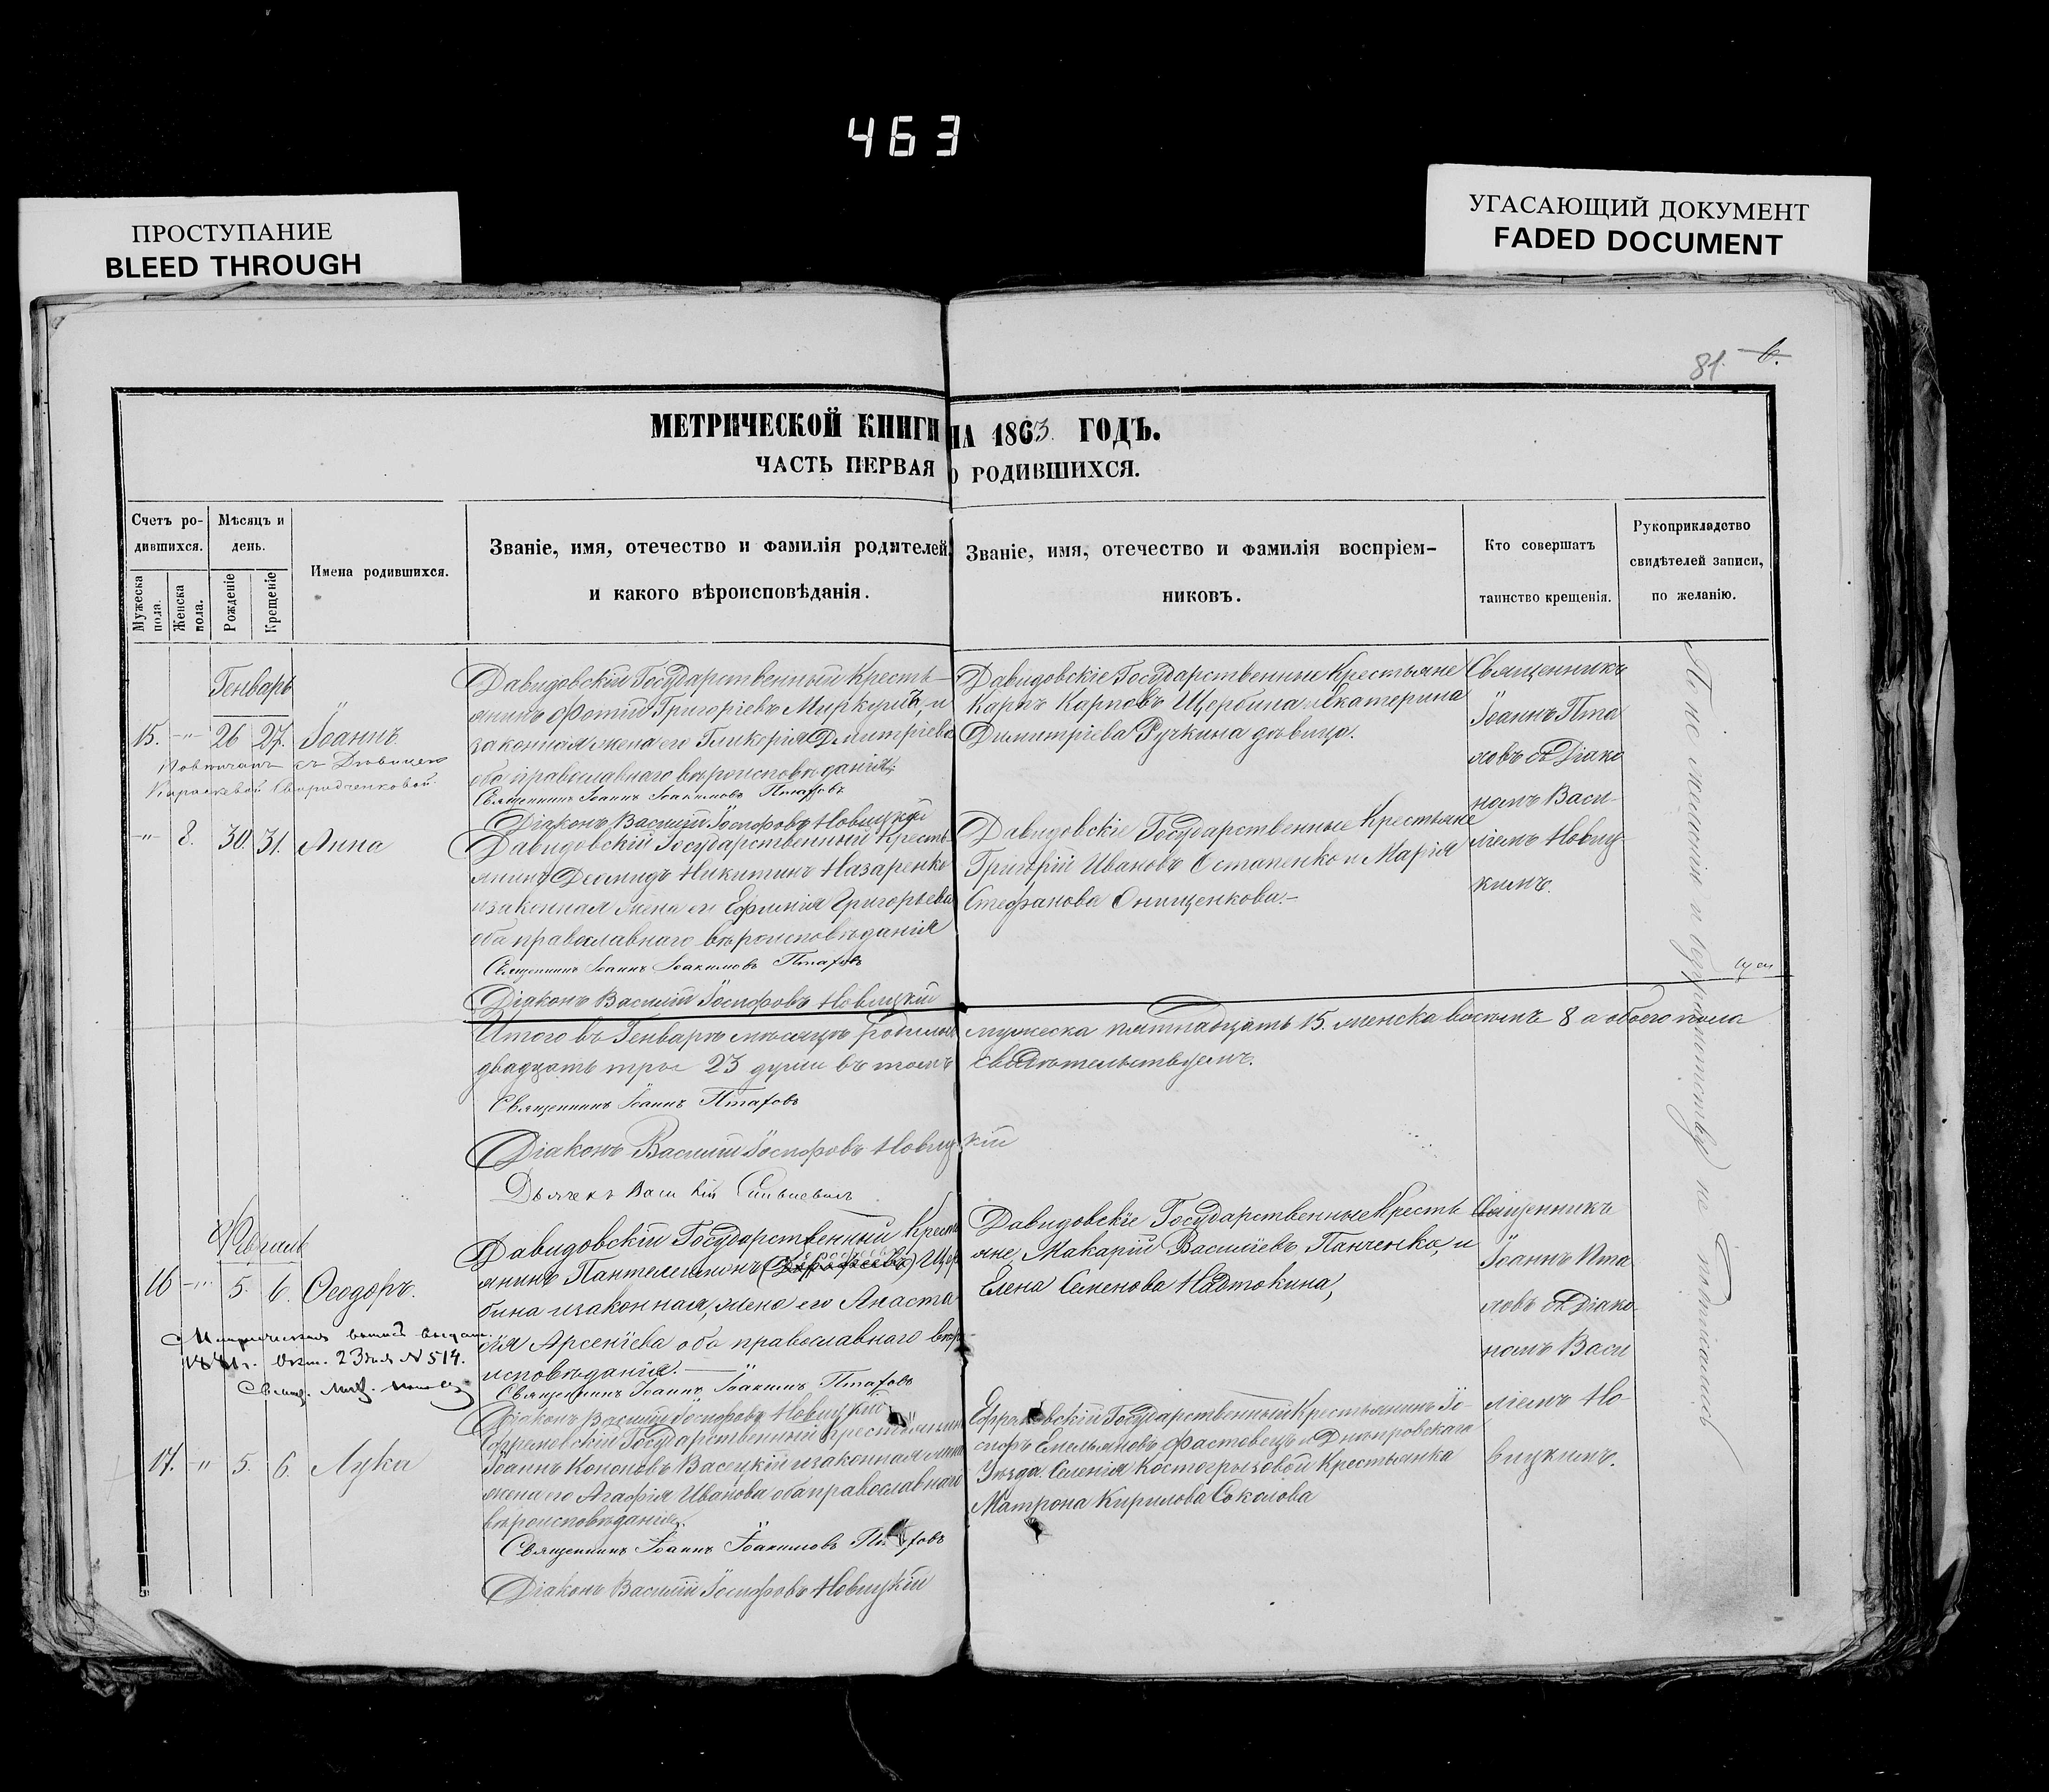 463
ПРОСТУПАНИЕ
BLEED THROUGH
УГАСАЮЩИЙ ДОКУМЕНТ
FADED DOCUMENT
81. 6.
МЕТРИЧЕСКОЙ КНИГИ НА 1863 ГОДЪ.
ЧАСТЬ ПЕРВАЯ О РОДИВШИХСЯ.
Счетъ ро-
дившихся.
Мужеска пола.
Женска пола.
Мѣсяцъ и
день.
Рожденіе
Крещеніе
Имена родившихся.
Званіе, имя, отечество и фамилія родителей,
и какого вѣроисповѣданія.
Званіе, имя, отечество и фамилія воспріем-
никовъ.
Кто совершатъ
таинство крещенія.
Рукоприкладство
свидѣтелей записи,
по желанію.
Генварь
15. -"- 26 27. Іоаннъ
Давидовскій Государственный Кресть-
янинъ Фотій Григоріевъ Меркурій, и
законная жена его Гликерія Димитріева
оба православнаго вѣроисповѣданія.
Священникъ Іоаннъ Іоакимовъ Птаховъ
Діаконъ Василій Іосифовъ Новицкій
Давидовскіе Государственные Крестьяне
Карпъ Карповъ Щербина и Екатерина
Димитріева Ручкина дѣвица.
Священникъ
Іоаннъ Пта
ховъ съ Діако
номъ Васи-
ліемъ Новиц-
кимъ.
-"- 8. 30. 31. Анна
Давидовскій Государственный Кресть
янинъ Діомидъ Никитинъ Назаренко
и законная жена его Ефимія Григорьева
оба православнаго вѣроисповѣданія
Священникъ Іоаннъ Іоакимовъ Птаховъ
Діаконъ Василій Іосифовъ Новицкій
Давидовскіе Государственные Крестьяне
Григорій Ивановъ Остапенко и Марія
Стефанова Онищенкова.-
Итого въ Генварѣ мѣсяцѣ родилось мужеска пятнадцать 15. женска восемь 8 а обоего пола
двадцать три 23 души въ томъ свидѣтельствуемъ.
Священникъ Іоаннъ Птаховъ
Діаконъ Василій Іосифовъ Новицкій
Дьячекъ Василій
Февраль
16 -"- 5. 6. Ѳеодоръ.
Давидовскій Государственный Кресть
янинъ Пантелеимонъ Щер
бина и законная, жена его Анаста
сія Арсеніева оба православнаго вѣро-
исповѣданія.
Священникъ Іоаннъ Іоакимъ Птаховъ
Діаконъ Василій Іосифовъ Новицкій
Давидовскіе Государственные Кресть
яне, Макарій Василіевъ Панченко, и
Елена Семенова Надтокина,
Священникъ
Іоаннъ Пта
ховъ съ Діако-
номъ Васи
ліемъ Но-
вицкимъ.
23 дня № 514.
17. " 5. 6. Лука
Ефремовскій Государственный Крестьянинъ
Іоаннъ Кононовъ Васецкій и законная
жена его Агафія Иванова оба православнаго
вѣроисповѣданія.
Священникъ Іоаннъ Іоакимовъ Птаховъ
Діаконъ Василій Іосифовъ Новицкій
Ефремовскій Государственный Крестьянинъ Іо-
сифъ Емельяновъ Фастовецъ и Днѣпровскаго
Уѣзда Селенія Костогрызовой Крестьянка
Матрона Кирилова Соколова